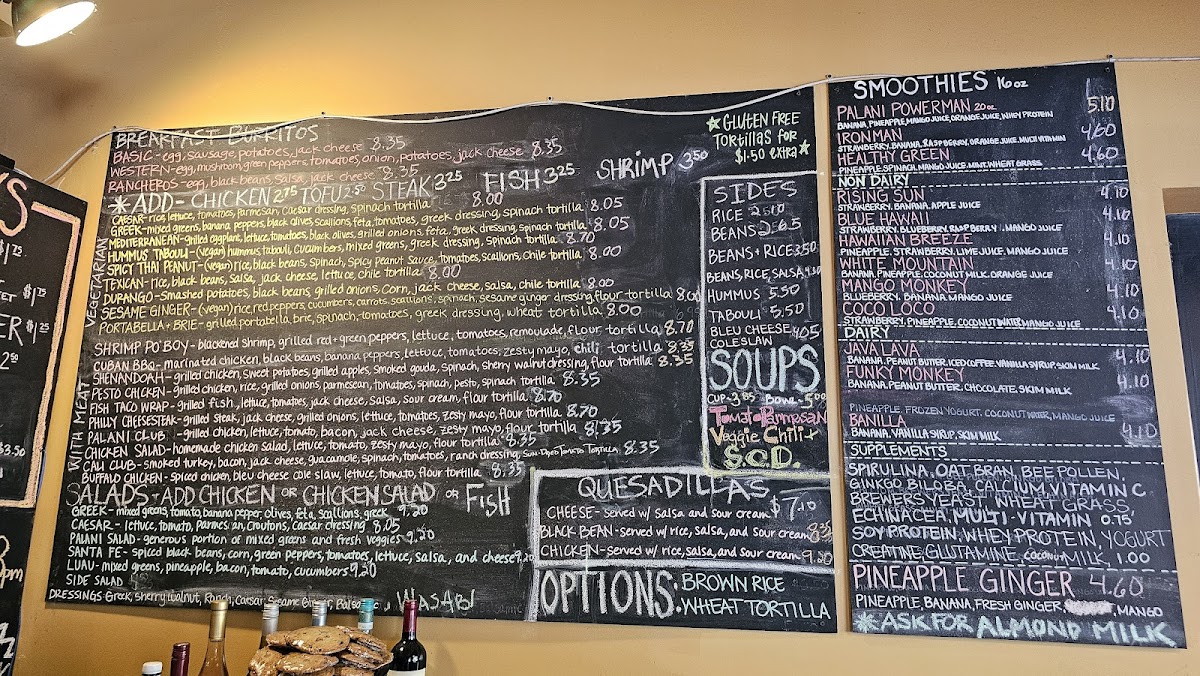 S
$1.75
$1.75
ER $1.25
2.50
$3.50
3pm
BREAKFAST BURRITOS
BASIC - egg, sausage, potatoes, jack cheese 8.35
WESTERN - egg, mushroom, green peppers, tomatoes, onion, potatoes, jack cheese 8.35
RANCHEROS - egg, black beans, salsa, jack cheese 8.35
*ADD - CHICKEN 2.75 TOFU 2.50 STEAK 3.25 FISH 3.25 SHRIMP 3.50
*GLUTEN FREE
TORTILLAS for
$1.50 extra*
VEGETARIAN
CAESAR - rice, lettuce, tomatoes, parmesan, Caesar dressing, spinach tortilla 8.00
GREEK - mixed greens, banana peppers, black olives, scallions, feta, tomatoes, greek dressing, spinach tortilla 8.05
MEDITERRANEAN - grilled eggplant, lettuce, tomatoes, black olives, grilled onions, feta, greek dressing, spinach tortilla 8.05
HUMMUS TABOULI - (vegan) hummus, tabouli, cucumbers, mixed greens, greek dressing, Spinach tortilla 8.70
SPICY THAI PEANUT - (vegan) rice, black beans, spinach, Spicy peanut Sauce, tomatoes, scallions, Chile tortilla 8.00
TEXICAN - rice, black beans, salsa, jack cheese, lettuce, chile tortilla 8.00
DURANGO - Smashed potatoes, black beans, grilled onions, corn, jack cheese, salsa, chile tortilla 8.00
SESAME GINGER - (vegan) rice, red peppers, cucumbers, carrots, scallions, spinach, sesame ginger dressing, flour tortilla 8.00
PORTABELLA + BRIE - grilled portabella, brie, spinach, tomatoes, greek dressing, wheat tortilla 8.00
WITH MEAT
SHRIMP PO' BOY - blackened shrimp, grilled red + green peppers, lettuce, tomatoes, remoulade, flour tortilla 8.70
CUBAN BBQ - marinated chicken, black beans, banana peppers, lettuce, tomatoes, zesty mayo, chili tortilla 8.35
SHENANDOAH - grilled chicken, sweet potatoes, grilled apples, smoked gouda, spinach, sherry walnut dressing, flour tortilla 8.35
PESTO CHICKEN - grilled chicken, rice, grilled onions, parmesan, tomatoes, spinach, pesto, spinach tortilla 8.35
FISH TACO WRAP - grilled fish, lettuce, tomatoes, jack cheese, Salsa, Sour cream, flour tortilla 8.70
PHILLY CHEESESTEAK - grilled steak, jack cheese, grilled onions, lettuce, tomatoes, zesty mayo, flour tortilla 8.70
PALANI CLUB - grilled chicken, lettuce, tomato, bacon, jack cheese, zesty mayo, flour tortilla 8.35
CHICKEN SALAD - homemade chicken salad, lettuce, tomato, zesty mayo, flour tortilla 8.35
CALI CLUB - smoked turkey, bacon, jack cheese, guacamole, spinach, tomatoes, ranch dressing, Sun-Dried Tomato Tortilla 8.35
BUFFALO CHICKEN - Spiced chicken, bleu cheese cole slaw, lettuce, tomato, flour tortilla 8.35
SALADS - ADD CHICKEN or CHICKEN SALAD or FISH
GREEK - mixed greens, tomato, banana pepper, olives, feta, scallions, greek 9.20
CAESAR - lettuce, tomato, parmesan, croutons, Caesar dressing 8.05
PALANI SALAD - generous portion of mixed greens and fresh veggies 9.20
SANTA FE - spiced black beans, corn, green peppers, tomatoes, lettuce, salsa, and cheese 9.20
LUAU - mixed greens, pineapple, bacon, tomato, cucumbers 9.20
SIDE SALAD
DRESSINGS Greek, Sherry walnut, Ranch, Caesar, Sesame Ginger, Balsamic, WASABI
SIDES
RICE 2.50
BEANS 2.65
BEANS + RICE 3.50
BEANS, RICE, SALSA 4.30
HUMMUS 5.50
TABOULI 5.50
BLEU CHEESE 4.05
COLESLAW
SOUPS
CUP - 3.85 BOWL - 5.00
Tomato Parmesan
Veggie Chili +
S.O.D.
QUESADILLAS
CHEESE - Served w/ Salsa and Sour cream $7.10
BLACK BEAN - served w/ rice, salsa, and Sour cream 8.35
CHICKEN - served w/ rice, salsa, and Sour cream 9.20
OPTIONS: BROWN RICE
WHEAT TORTILLA
SMOOTHIES 16 oz
PALANI POWERMAN 20 oz 5.10
BANANA, PINEAPPLE, MANGO JUICE, ORANGE JUICE, WHEY PROTEIN
IRONMAN 4.60
STRAWBERRY, BANANA, RASPBERRY, ORANGE JUICE, MULTI VITAMIN
HEALTHY GREEN 4.60
PINEAPPLE, SPINACH, MANGO JUICE, MINT, WHEAT GRASS
NON DAIRY
RISING SUN 4.10
STRAWBERRY, BANANA, APPLE JUICE
BLUE HAWAII 4.10
STRAWBERRY, BLUEBERRY, RASPBERRY, MANGO JUICE
HAWAIIAN BREEZE 4.10
PINEAPPLE, STRAWBERRY, LIME JUICE, MANGO JUICE
WHITE MOUNTAIN 4.10
BANANA, PINEAPPLE, COCONUT MILK, ORANGE JUICE
MANGO MONKEY 4.10
BLUEBERRY, BANANA, MANGO JUICE
COCO LOCO 4.10
STRAWBERRY, PINEAPPLE, COCONUT WATER, MANGO JUICE
DAIRY
JAVA LAVA 4.10
BANANA, PEANUT BUTTER, ICED COFFEE, VANILLA SYRUP, SKIM MILK
FUNKY MONKEY 4.10
BANANA, PEANUT BUTTER, CHOCOLATE, SKIM MILK
PINEAPPLE, FROZEN YOGURT, COCONUT WATER, MANGO JUICE
BANILLA 4.10
BANANA, VANILLA SYRUP, SKIM MILK
SUPPLEMENTS
SPIRULINA, OAT BRAN, BEE POLLEN,
GINKGO BILOBA, CALCIUM, VITAMIN C
BREWERS YEAST, WHEAT GRASS,
ECHINACEA, MULTI-VITAMIN 0.75
SOY PROTEIN, WHEY PROTEIN, YOGURT
CREATINE, GLUTAMINE, COCONUT MILK, 1.00
PINEAPPLE GINGER 4.60
PINEAPPLE, BANANA, FRESH GINGER, MANGO
*ASK FOR ALMOND MILK